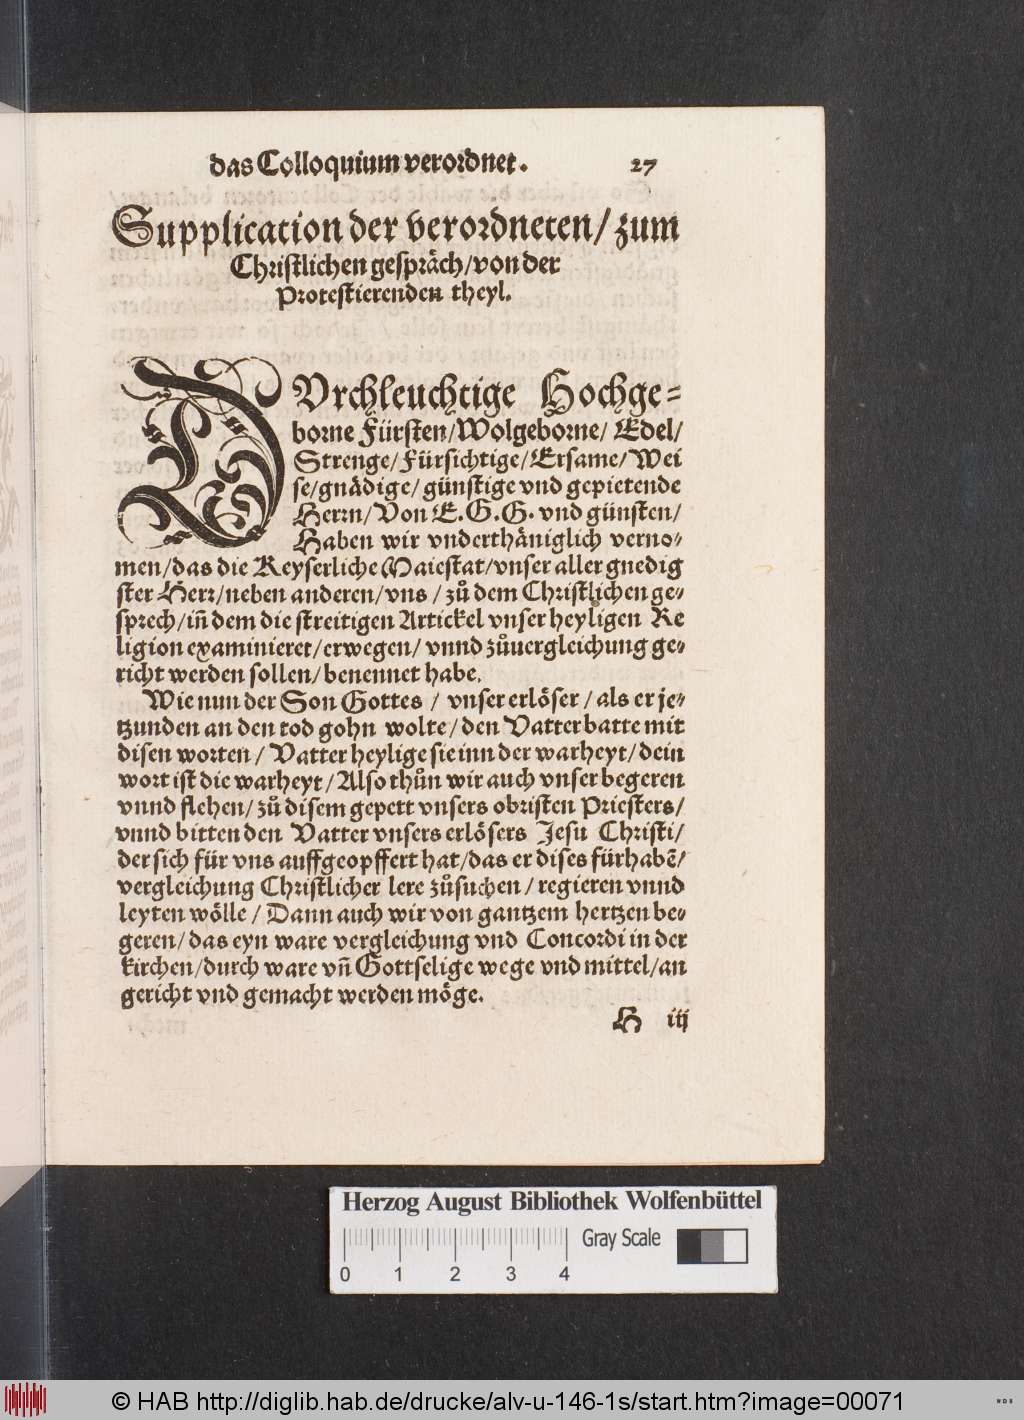 das Colloquium verordnet. 27
Supplication der verordneten/ zum
Christlichen gespräch/ von der
Protestierenden theyl.
DVrchleuchtige Hochge=
borne Fürsten/ Wolgeborne/ Edel/
Strenge/ Fürsichtige/ Ersame/ Wei
se/ gnädige/ günstige vnd gepietende
Herrn/ Von E. G. G. vnd günsten/
Haben wir vnderthäniglich verno=
men/ das die Keyserliche Maiestat/ vnser aller gnedig
ster Herr/ neben anderen/ vns / zů dem Christlichen ge=
sprech/ iñ dem die streitigen Artickel vnser heyligen Re
ligion examinieret/ erwegen/ vnnd zůuergleichung ge=
richt werden sollen/ benennet habe.
Wie nun der Son Gottes / vnser erlöser / als er je=
tzunden an den tod gohn wolte/ den Vatter batte mit
disen worten / Vatter heylige sie inn der warheyt/ dein
wort ist die warheyt / Also thůn wir auch vnser begeren
vnnd flehen/ zů disem gepett vnsers obristen Priesters/
vnnd bitten den Vatter vnsers erlösers Jesu Christi/
der sich für vns auffgeopffert hat/ das er dises fürhabẽ/
vergleichung Christlicher lere zůsuchen / regieren vnnd
leyten wölle / Dann auch wir von gantzem hertzen be=
geren/ das eyn ware vergleichung vnd Concordi in der
kirchen/ durch ware vñ Gottselige wege vnd mittel/ an
gericht vnd gemacht werden möge.
H iij
Herzog August Bibliothek Wolfenbüttel
Gray Scale
0 1 2 3 4
© HAB http://diglib.hab.de/drucke/alv-u-146-1s/start.htm?image=00071